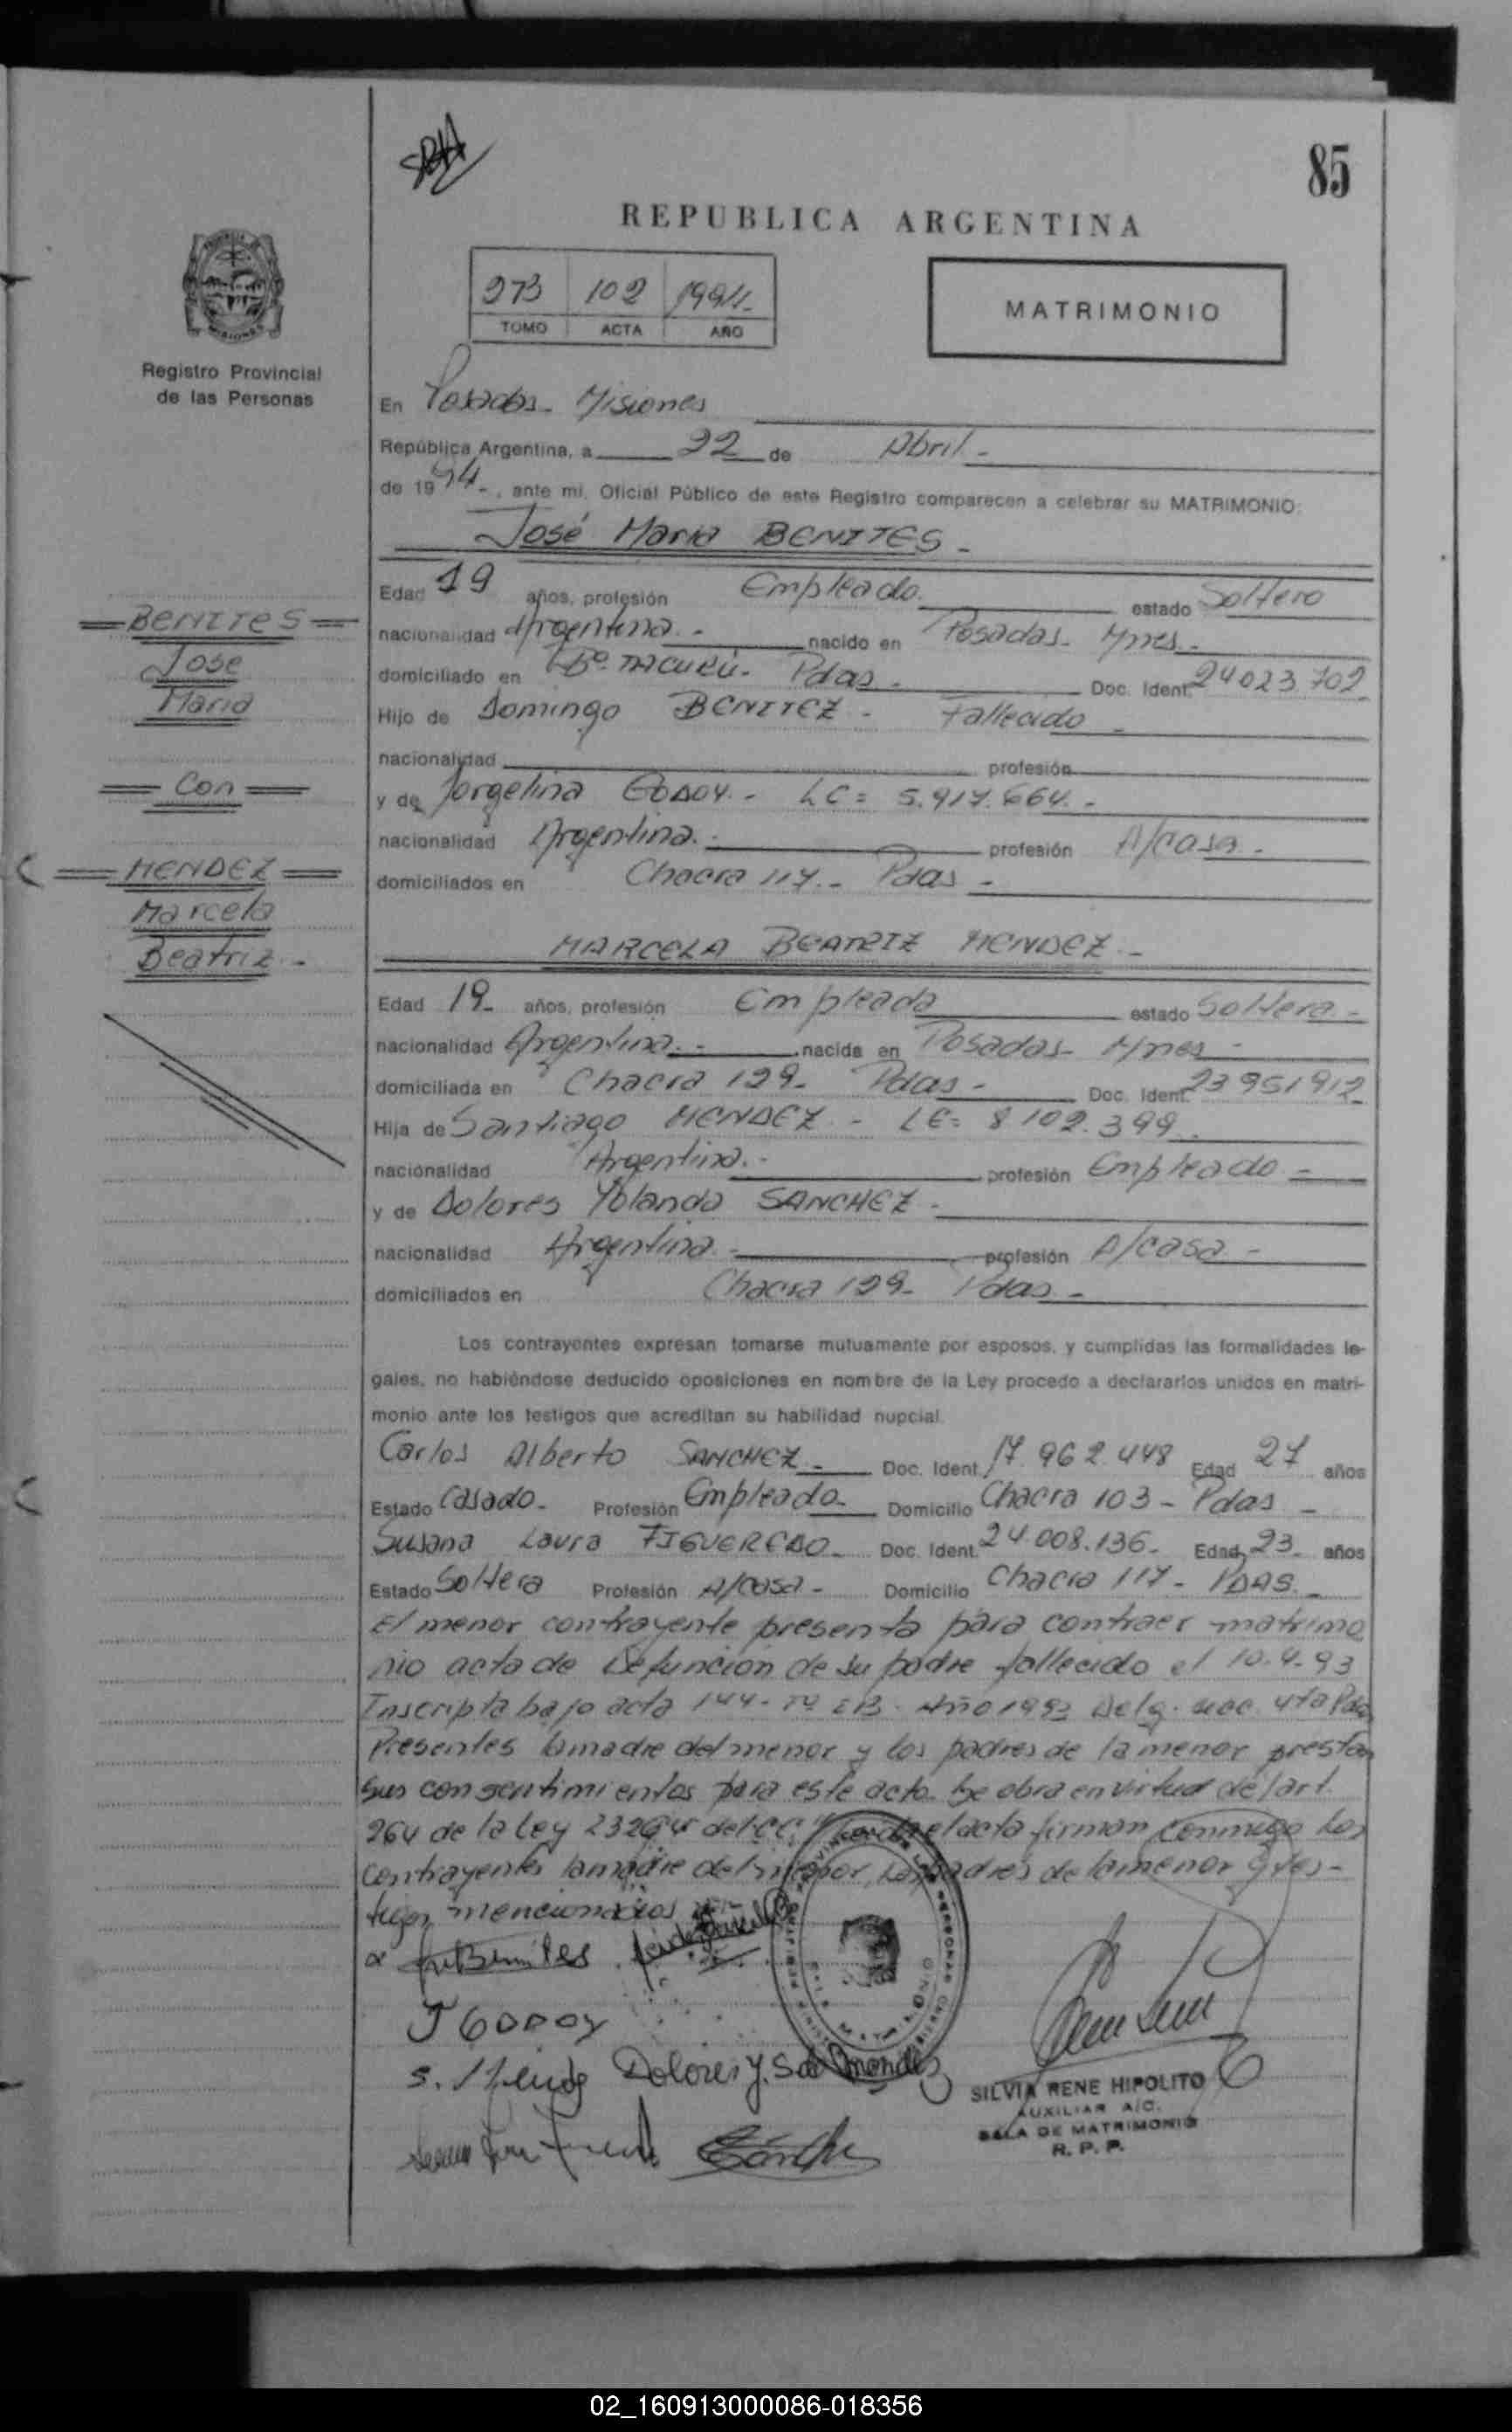 85
REPUBLICA ARGENTINA
273 102 1994.-
TOMO ACTA AÑO
MATRIMONIO
Registro Provincial
de las Personas
En Posadas - Misiones
República Argentina, a 22 de Abril -
de 1994-, ante mí, Oficial Público de este Registro comparecen a celebrar su MATRIMONIO:
José Maria BENITES -
Edad 19 años, profesión Empleado. estado Soltero
nacionalidad Argentina.- nacido en Posadas- Mnes.-
domiciliado en Bº TACURÚ- Pdas - Doc. Ident. 24023.702
Hijo de Domingo BENITEZ - Fallecido -
nacionalidad profesión
y de Jorgelina GODOY.- LC= 5.917.664.-
nacionalidad Argentina.- profesión A/casa.-
domiciliados en Chacra 117.- Pdas -
BENITES
José
Maria
Con
MENDEZ
Marcela
Beatriz.-
MARCELA BEATRIZ MENDEZ.-
Edad 19- años, profesión Empleada estado Soltera.-
nacionalidad Argentina.- nacida en Posadas- Mnes-
domiciliada en Chacra 129- Pdas- Doc. Ident. 23951912
Hija de Santiago MENDEZ.- LE= 8102.399
nacionalidad Argentina.- profesión Empleado -
y de Dolores Yolanda SANCHEZ -
nacionalidad Argentina.- profesión A/casa -
domiciliados en Chacra 129- Pdas.-
Los contrayentes expresan tomarse mutuamente por esposos, y cumplidas las formalidades le-
gales, no habiéndose deducido oposiciones en nombre de la Ley procedo a declararlos unidos en matri-
monio ante los testigos que acreditan su habilidad nupcial.
Carlos Alberto SANCHEZ.- Doc. Ident. 17.962.448 Edad 27 años
Estado Casado- Profesión Empleado- Domicilio Chacra 103 - Pdas -
Susana Laura FIGUEREDO- Doc. Ident. 24.008.136- Edad 23- años
Estado Soltera Profesión A/casa- Domicilio Chacra 117- PDAS.-
El menor contrayente presenta para contraer matrimo
nio acta de Defunción de su padre fallecido el 10.4.93
Inscripta bajo acta 144- Año 1993 Delg. 4ta Pdas
Presentes la madre del menor y los padres de la menor prestan
sus consentimientos para este acto. Se obra en virtud del art.
264 de la Ley 23264 del CC. el acta firman conmigo los
contrayentes la madre del menor, los padres de la menor y tes-
tigos mencionados
J GODOY
Dolores Y. S de Mendez
SILVIA RENE HIPOLITO
AUXILIAR A/C.
SALA DE MATRIMONIO
R. P. P.
02_160913000086-018356